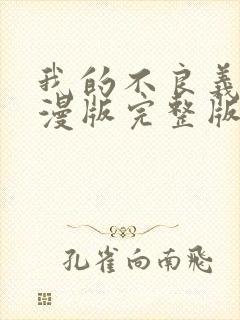 我的不良義
漫版完整版
孔雀向南飛